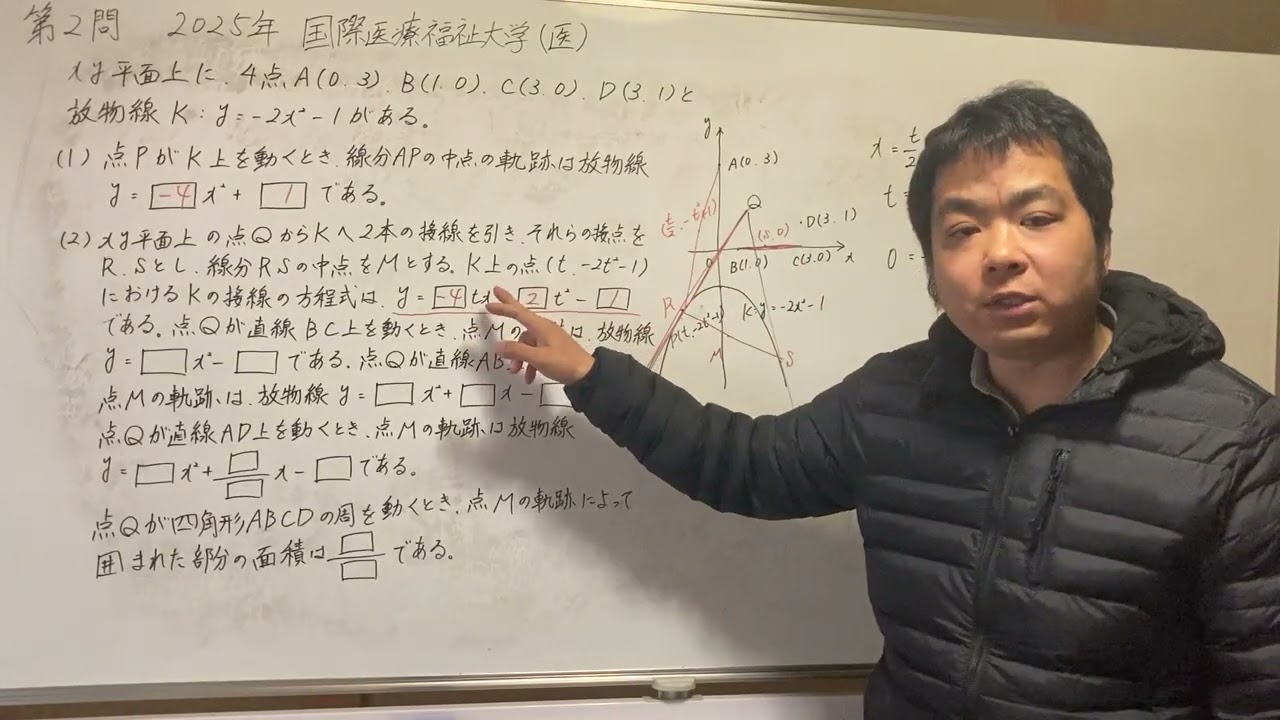 第2問 2025年 国際医療福祉大学(医)
xy平面上に、4点A(0.3)、B(1.0)、C(3.0)、D(3.1)と
放物線 K: y=-2x²-1がある。
(1) 点PがK上を動くとき、線分APの中点の軌跡は放物線
y= -4 x²+ 1 である。
(2) xy平面上の点QからKへ2本の接線を引き、それらの接点を
R、Sとし、線分RSの中点をMとする。K上の点(t、-2t²-1)
におけるKの接線の方程式は、y= -4 tx 2 t²- 1
である。点Qが直線BC上を動くとき、点Mの は、放物線
y=□x²-□である。点Qが直線AB
点Mの軌跡は、放物線 y=□x²+□x-
点Qが直線AD上を動くとき、点Mの軌跡は放物線
y=□x²+□/□x-□である。
点Qが四角形ABCDの周を動くとき、点Mの軌跡によって
囲まれた部分の面積は□/□である。
y
A(0.3)
Q
(s,0)
・D(3.1)
0
B(1.0)
C(3.0)
x
R
K:y=-2x²-1
M
S
x=t/2
t=
0=